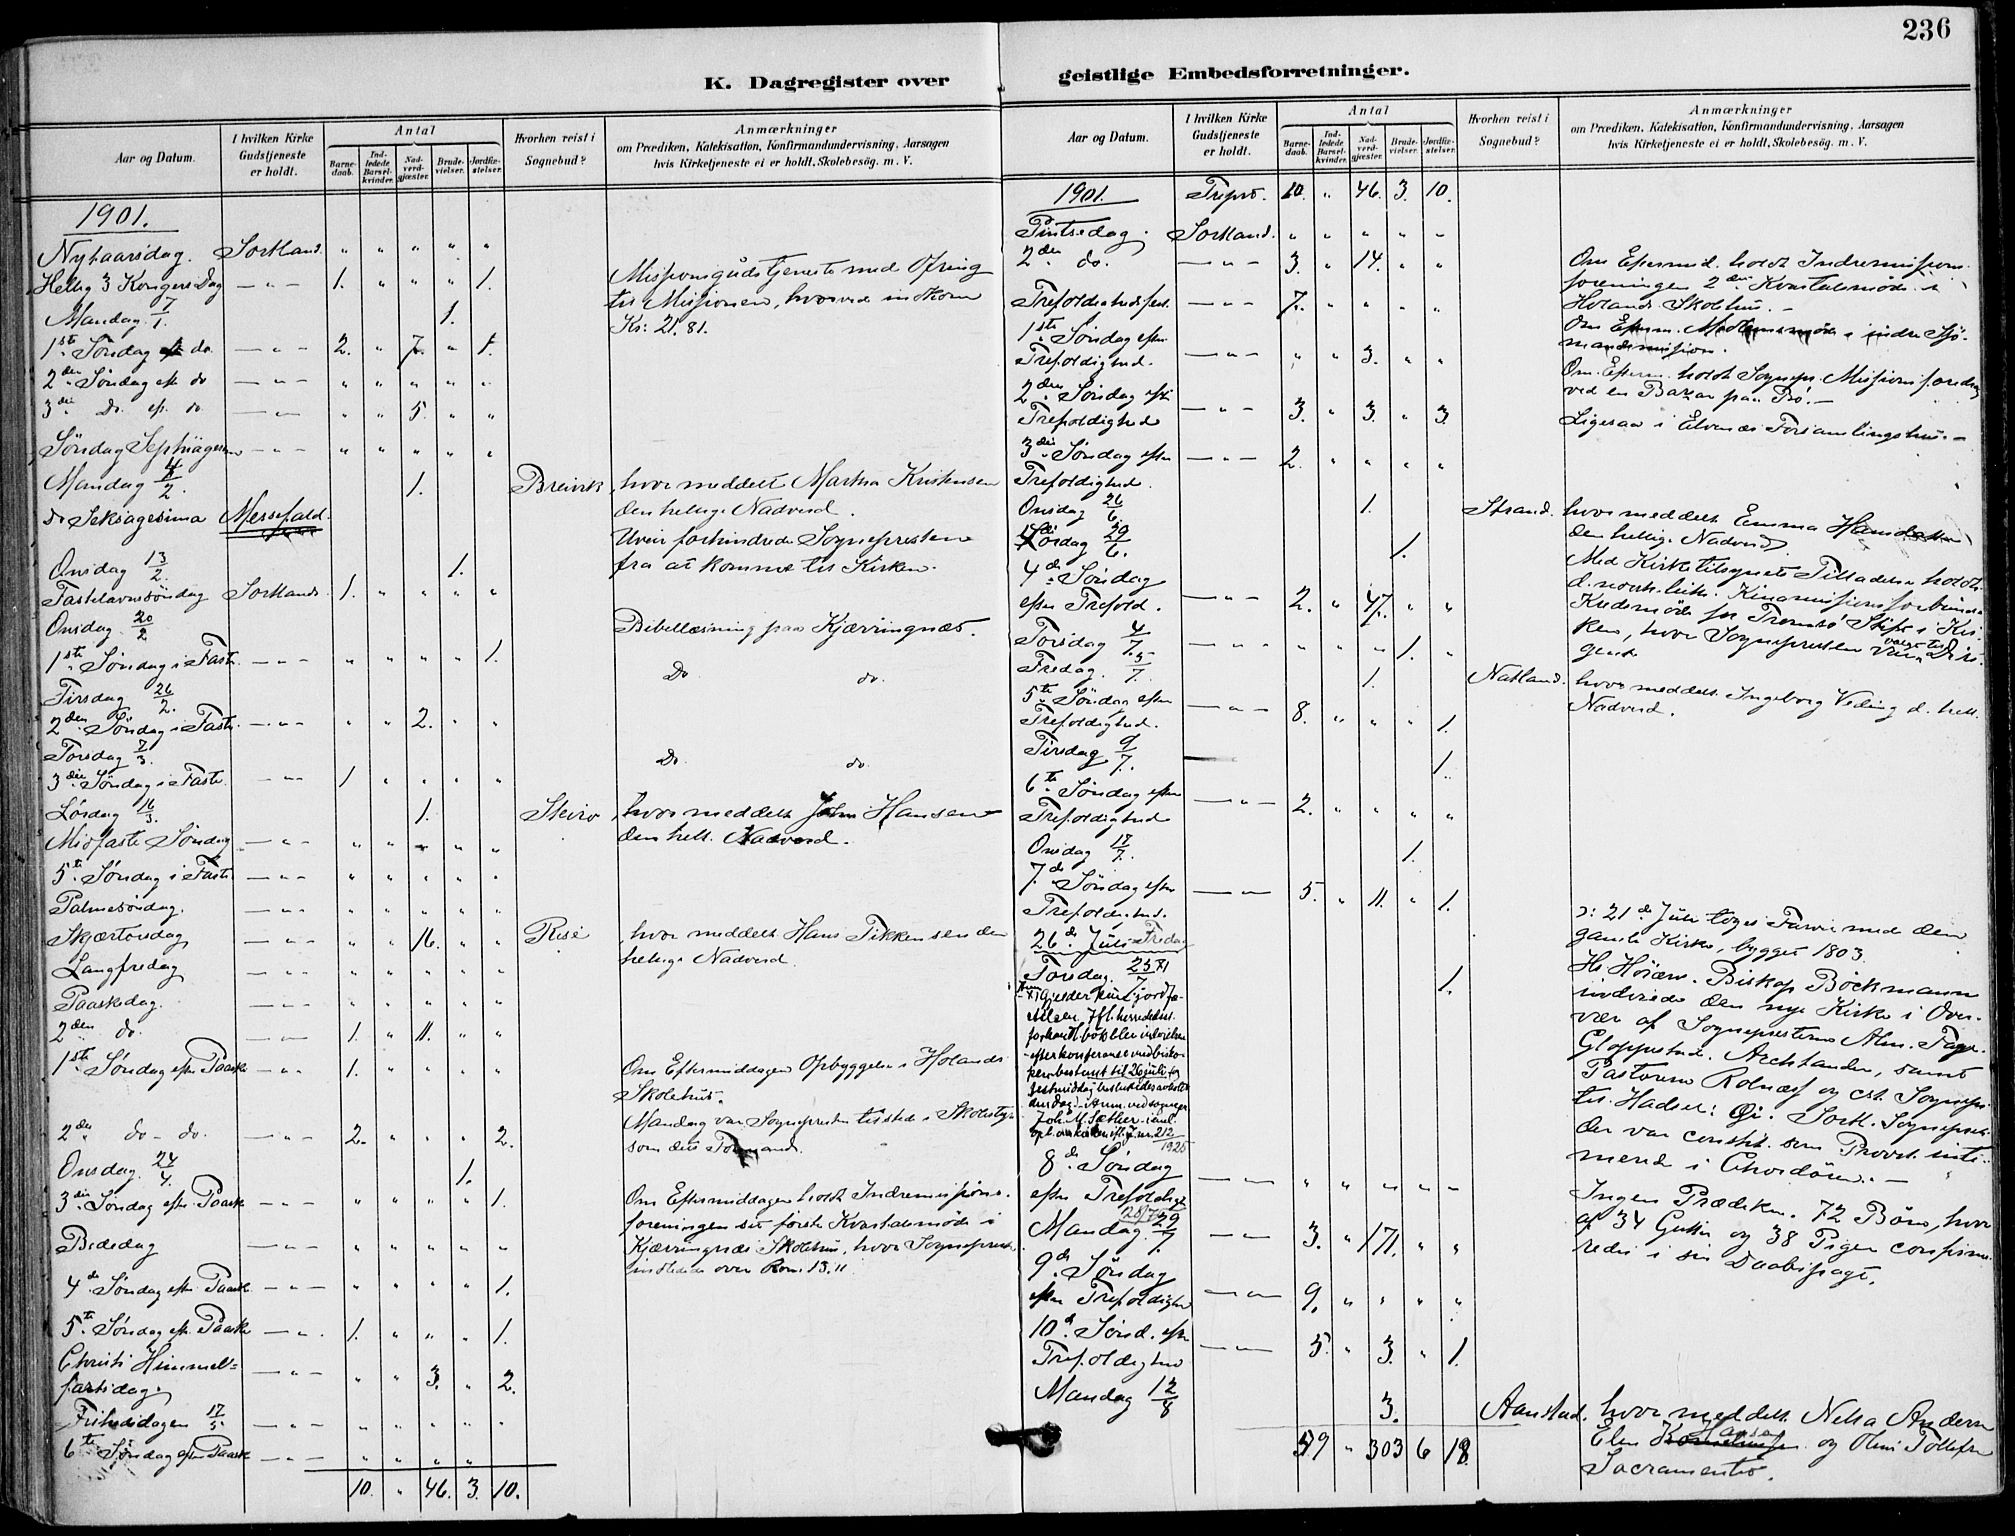 236
K. Dagregister over
geistlige Embedsforretninger.
Aar og Datum.
I hvilken Kirke
Gudstjeneste
er holdt.
Antal
Barne-
daab.
Ind-
ledede
Barsel-
kvinder.
Nad-
verd-
gjæster.
Brude-
vielser.
Jordfæ-
stelser.
Hvorhen reist i
Sognebud?
Anmærkninger
om Prædiken, Katekisation, Konfirmandundervisning, Aarsagen
hvis Kirketjeneste ei er holdt, Skolebesög. m. V.
1901.
Nytaarsdag. Sortland. " " " " "
Hellig 3 Kongers Dag — " — 1. " " " 1. Missionsgudstjeneste med Ofring
til Missionen, hvorved indkom
Kr: 21.81.
Mandag 7/1. 1.
1ste Søndag do. — " — 2. " 7. " 1.
2den Søndag eft. do — " — " " " " "
3die Do. ef. do — " — " " 5. " "
Søndag Septuages — " — " " " " "
Mandag 4/2. 1. Breivik, hvor meddelt Martha Kristensen
den hellige Nadverd.
do Seksagesima Messefald. Uveir forhindrede Sognepresten
fra at komme til Kirken.
Onsdag 13/2. 1.
Fastelavnssöndag Sortland. 1. " " " "
Onsdag 20/2 Bibellæsning paa Kjærringnæs.
1ste Söndag i Faste — " — " " " " 1.
Tirsdag 26/2. Do do.
2den Söndag i Faste. — " — " " 2. " "
Torsdag 7/3. Do. do.
3die Söndag i Faste. — " — 1. " " " "
Lördag 16/3. 1. Steiro, hvor meddelt John Hansen
den hell. Nadverd.
Midfaste Söndag — " — " " " " "
5te Söndag i Faste. — " — " " " " "
Palmesöndag. — " — " " " " "
Skjærtorsdag — " — " " 16. " " Rise, hvor meddelt Hans Tikkensen den
hellige Nadverd.
Langfredag — " — " " " " "
Paaskedag. — " — " " " " "
2den do. — " — 1. " 11. " "
1ste Söndag efter Paaske — " — 1. " " " " Om Eftermiddagen Opbyggelse i Holands
Skolehus.
Mandag var Sognepresten tilstede i Skolestyr
som dets Formand.
2den do - do. — " — 2. " " " 2.
Onsdag 24/4. 1.
3die Söndag efter Paaske — " — " " " " 1. Om Eftermiddagen holdt Indremissions-
foreningen sit förste Kvartalsmöde i
Kjærringnæs Skolehus, hvor Sognepresten
indledede over Rom. 13.11
Bededag — " — " " " " "
4de Söndag efter Paaske. — " — " " " " 1.
5te Söndag ef. Paaske — " — 1. " " " 1.
Christi Himmel-
fartsdag. — " — " " 3. " 2.
Frihedsdagen 17/5. — " — " " " " "
6te Söndag efter Paaske — " — " " " " "
10. " 46. 3. 10.
Aar og Datum.
I hvilken Kirke
Gudstjeneste
er holdt.
Antal
Barne-
daab.
Ind-
ledede
Barsel-
kvinder.
Nad-
verd-
gjæster.
Brude-
vielser.
Jordfæ-
stelser.
Hvorhen reist i
Sognebud?
Anmærkninger
om Prædiken, Katekisation, Konfirmandundervisning, Aarsagen
hvis Kirketjeneste ei er holdt, Skolebesög. m. V.
1901. 10. " 46. 3. 10.
Pintsedag. Sortland. " " " " "
2den do. — " — 3. " 14. " " Om Efermid. holdt Indremissions-
foreningen 2den Kvartalsmöde i
Holands Skolehus. —
Trefoldighedsfest. — " — 7. " " " "
1ste Söndag efter
Trefoldighed. — " — " " 3. " " Om Efterm. i indre Sjö-
mandsmission.
2den Söndag eft.
Trefoldighed — " — 3. " 3. " 3. Om Efterm. holdt Sognepr. Missionsforedrag
ved en Bazar paa Bö. —
Ligesaa i Elvenæs Forsamlingshus. —
3die Söndag efter
Trefoldighed. — " — 2. " " " "
Onsdag 26/6. 1. Strand. hvor meddelt Emma
den hellige Nadverd.
Lördag 29/6. 1.
4de Söndag
efter Trefold. — " — 2. " 47. " " Med Kirketilsynets Tilladelse holdt
d. norsk luth. Kinamissionsforbund
Kredsmöde for Tromsö Stift i Kir-
ken, hvor Sognepresten valgt til Diri-
gent.
Torsdag 4/7. — " — 1.
Fredag 5/7. 1. Natland. hvor meddelt Ingeborg Veding d. hell.
Nadverd.
5te Söndag efter
Trefoldighed. — " — 8. " " " 1.
Tirsdag 9/7. 1.
6te Söndag efter
Trefoldighed — " — 2. " " " "
Onsdag 17/7. 1.
7de Söndag efter
Trefoldighed. — " — 5. " 11. " 1. 21de Juli toges Farvel med den
gamle Kirke, bygget 1803.
26de Juli Fredag
Torsdag 25/7 x) 1. Hs Höiærv. Biskop Böckmann
indviede den nye Kirke i Over-
vær af Sognepresterne Alm.
Gloppestad. Archtander, samt
Pastorene Rolnæss og cst. Sognepr.
til Hadsel: Öi. Sortl. Sognepræst
der var constit. som Provst inti-
merede i Chordören. —
x) Gjelder kun jordfæ-
stelsen,
forhandl.bok blev indvielsen
efter konferanse med bisko-
pen bestemt til 26 juli og
Joh. M. Sæther
212/1925
8de Söndag
efter Trefoldigh. — " — " " " " " Ingen Prædiken. 72 Börn, hvor
af 34 Gutter og 38 Piger confirme-
redes i sin Daabspagt.
Mandag 29/7. — " — 3. " 171. " "
9de Söndag
efter Trefoldighed — " — 9. " " " "
10de Sönd. efter
Trefoldighed — " — 5. " 3. " 1.
Mandag 12/8 3. Aanstad. hvor meddelt Nelsa Andersen
Elen og Oline Tollefsen
Sacramentet.
59 " 303 6 18.